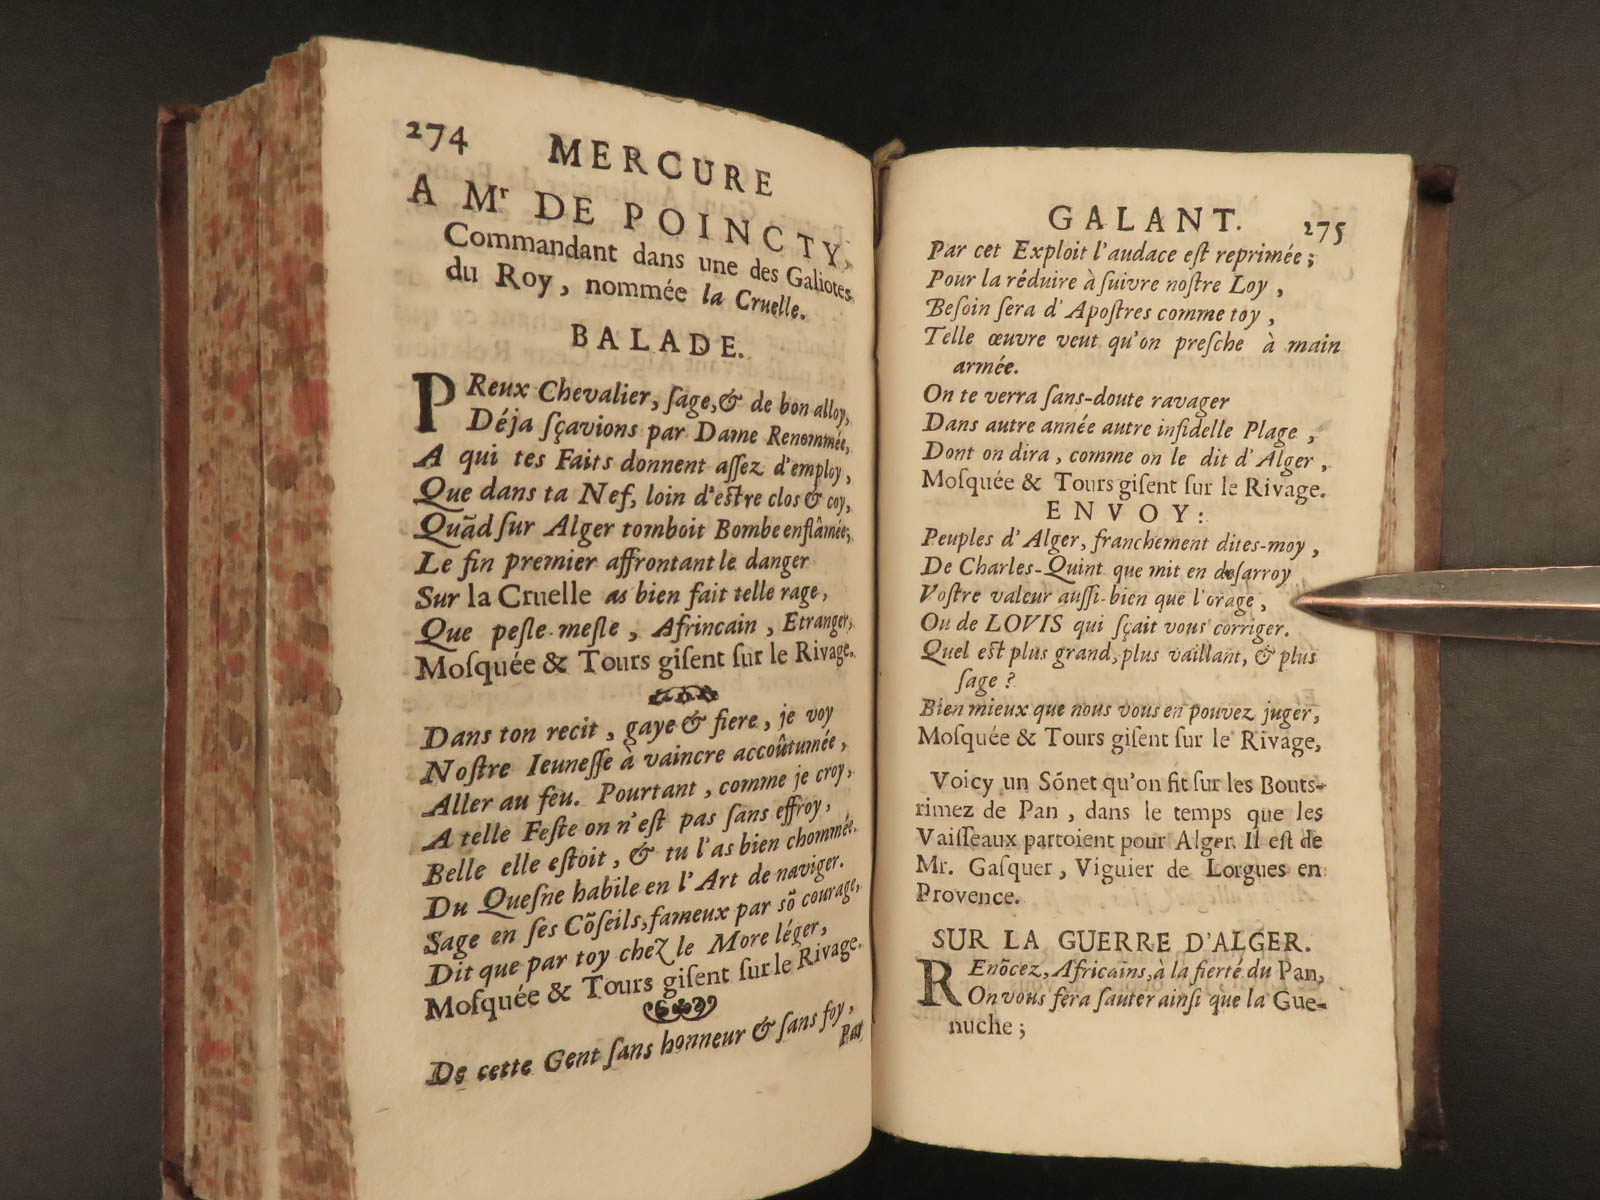 274 MERCURE
A Mr DE POINCTY,
Commandant dans une des Galiotes
du Roy, nommée la Cruelle.
BALADE.
PReux Chevalier, ſage, & de bon alloy,
Déja ſçavions par Dame Renommée,
A qui tes Faits donnent aſſez d'employ,
Que dans ta Nef, loin d'eſtre clos & coy,
Quãd ſur Alger tomboit Bombe enflâmée;
Le fin premier affrontant le danger
Sur la Cruelle as bien fait telle rage,
Que peſle meſle, Afrincain, Etranger,
Moſquée & Tours giſent ſur le Rivage.
Dans ton recit, gaye & fiere, je voy
Noſtre Ieuneſſe à vaincre accoûtumée,
Aller au feu. Pourtant, comme je croy,
A telle Feſte on n'eſt pas ſans effroy,
Belle elle eſtoit, & tu l'as bien chommée.
Du Queſne habile en l'Art de naviger.
Sage en ſes Cõſeils, fameux par sõ courage,
Dit que par toy chez le More léger,
Moſquée & Tours giſent ſur le Rivage.
De cette Gent ſans honneur & ſans foy,
Par
GALANT. 275
Par cet Exploit l'audace eſt reprimée;
Pour la réduire à ſuivre noſtre Loy,
Beſoin ſera d'Apoſtres comme toy,
Telle œuvre veut qu'on preſche à main
armée.
On te verra ſans-doute ravager
Dans autre année autre infidelle Plage,
Dont on dira, comme on le dit d'Alger,
Moſquée & Tours giſent ſur le Rivage.
ENVOY:
Peuples d'Alger, franchement dites-moy,
De Charles-Quint que mit en deſarroy
Voſtre valeur auſſi-bien que l'orage,
Ou de LOVIS qui ſçait vous corriger.
Quel eſt plus grand, plus vaillant, & plus
ſage?
Bien mieux que nous vous en pouvez juger,
Moſquée & Tours giſent ſur le Rivage,
Voicy un Sõnet qu'on fit ſur les Bouts-
rimez de Pan, dans le temps que les
Vaiſſeaux partoient pour Alger. Il eſt de
Mr. Gaſquer, Viguier de Lorgues en
Provence.
SUR LA GUERRE D'ALGER.
REnõcez, Africains, à la fierté du Pan,
On vous fera ſauter ainſi que la Gue-
nuche;